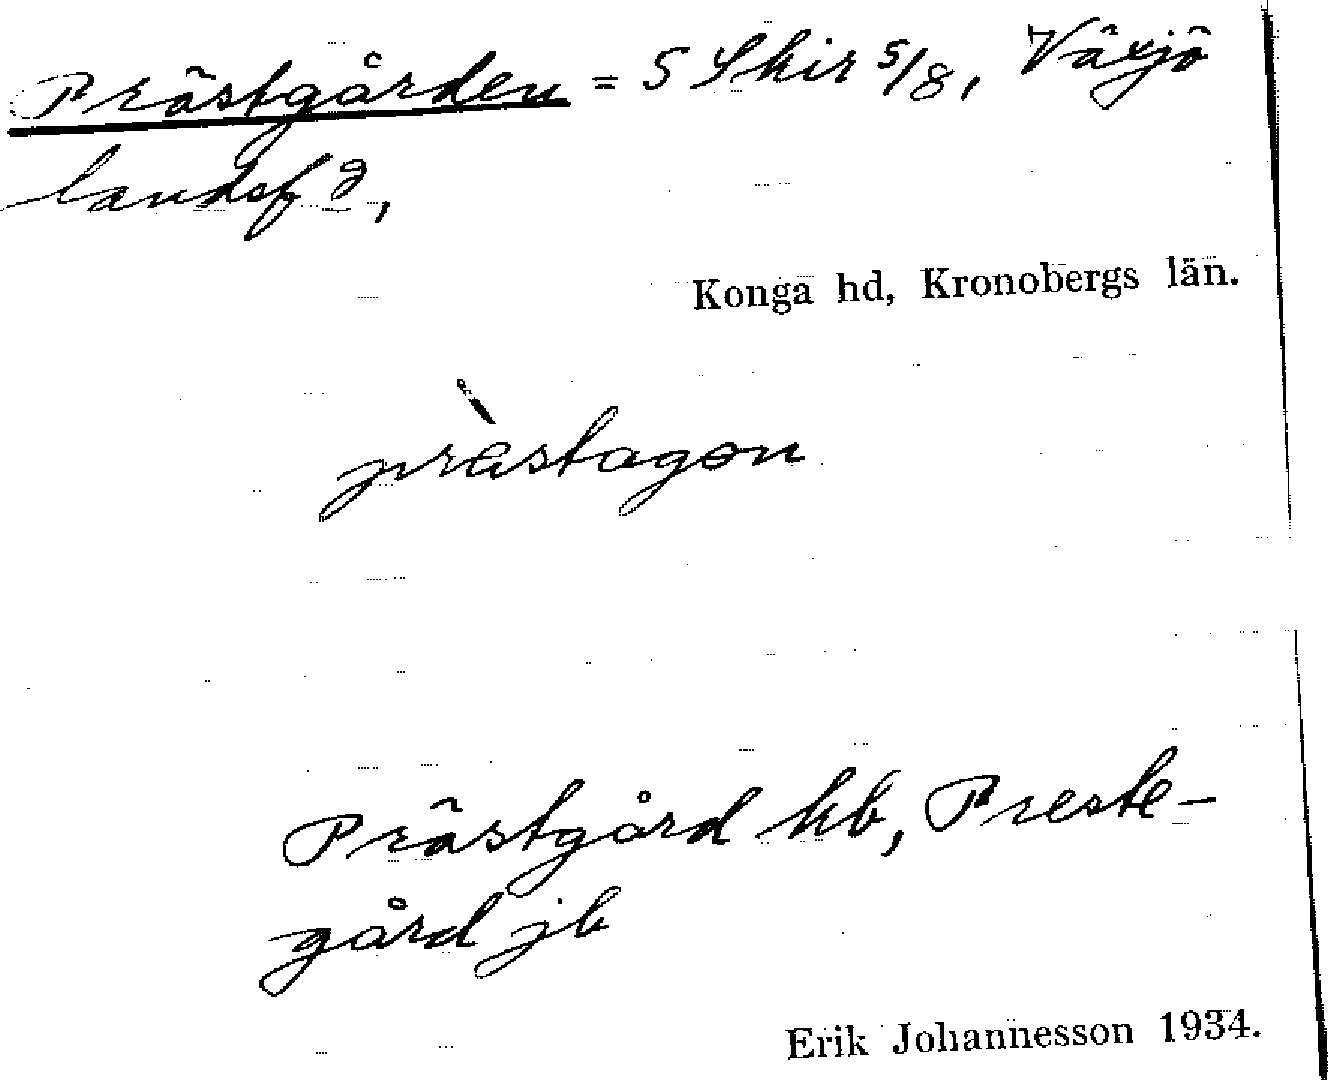 Prästgården = S Skir 5/8, Växjö
landsfg,
Konga hd, Kronobergs län.
prèstagon
Prästgård hb, Preste-
gård jb
Erik Johannesson 1934.